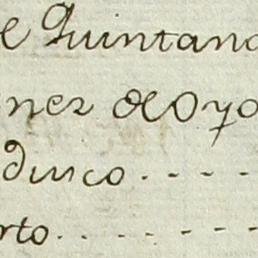 e Quintana
nez de Oyo
disco . - - -
rto . . - - - -